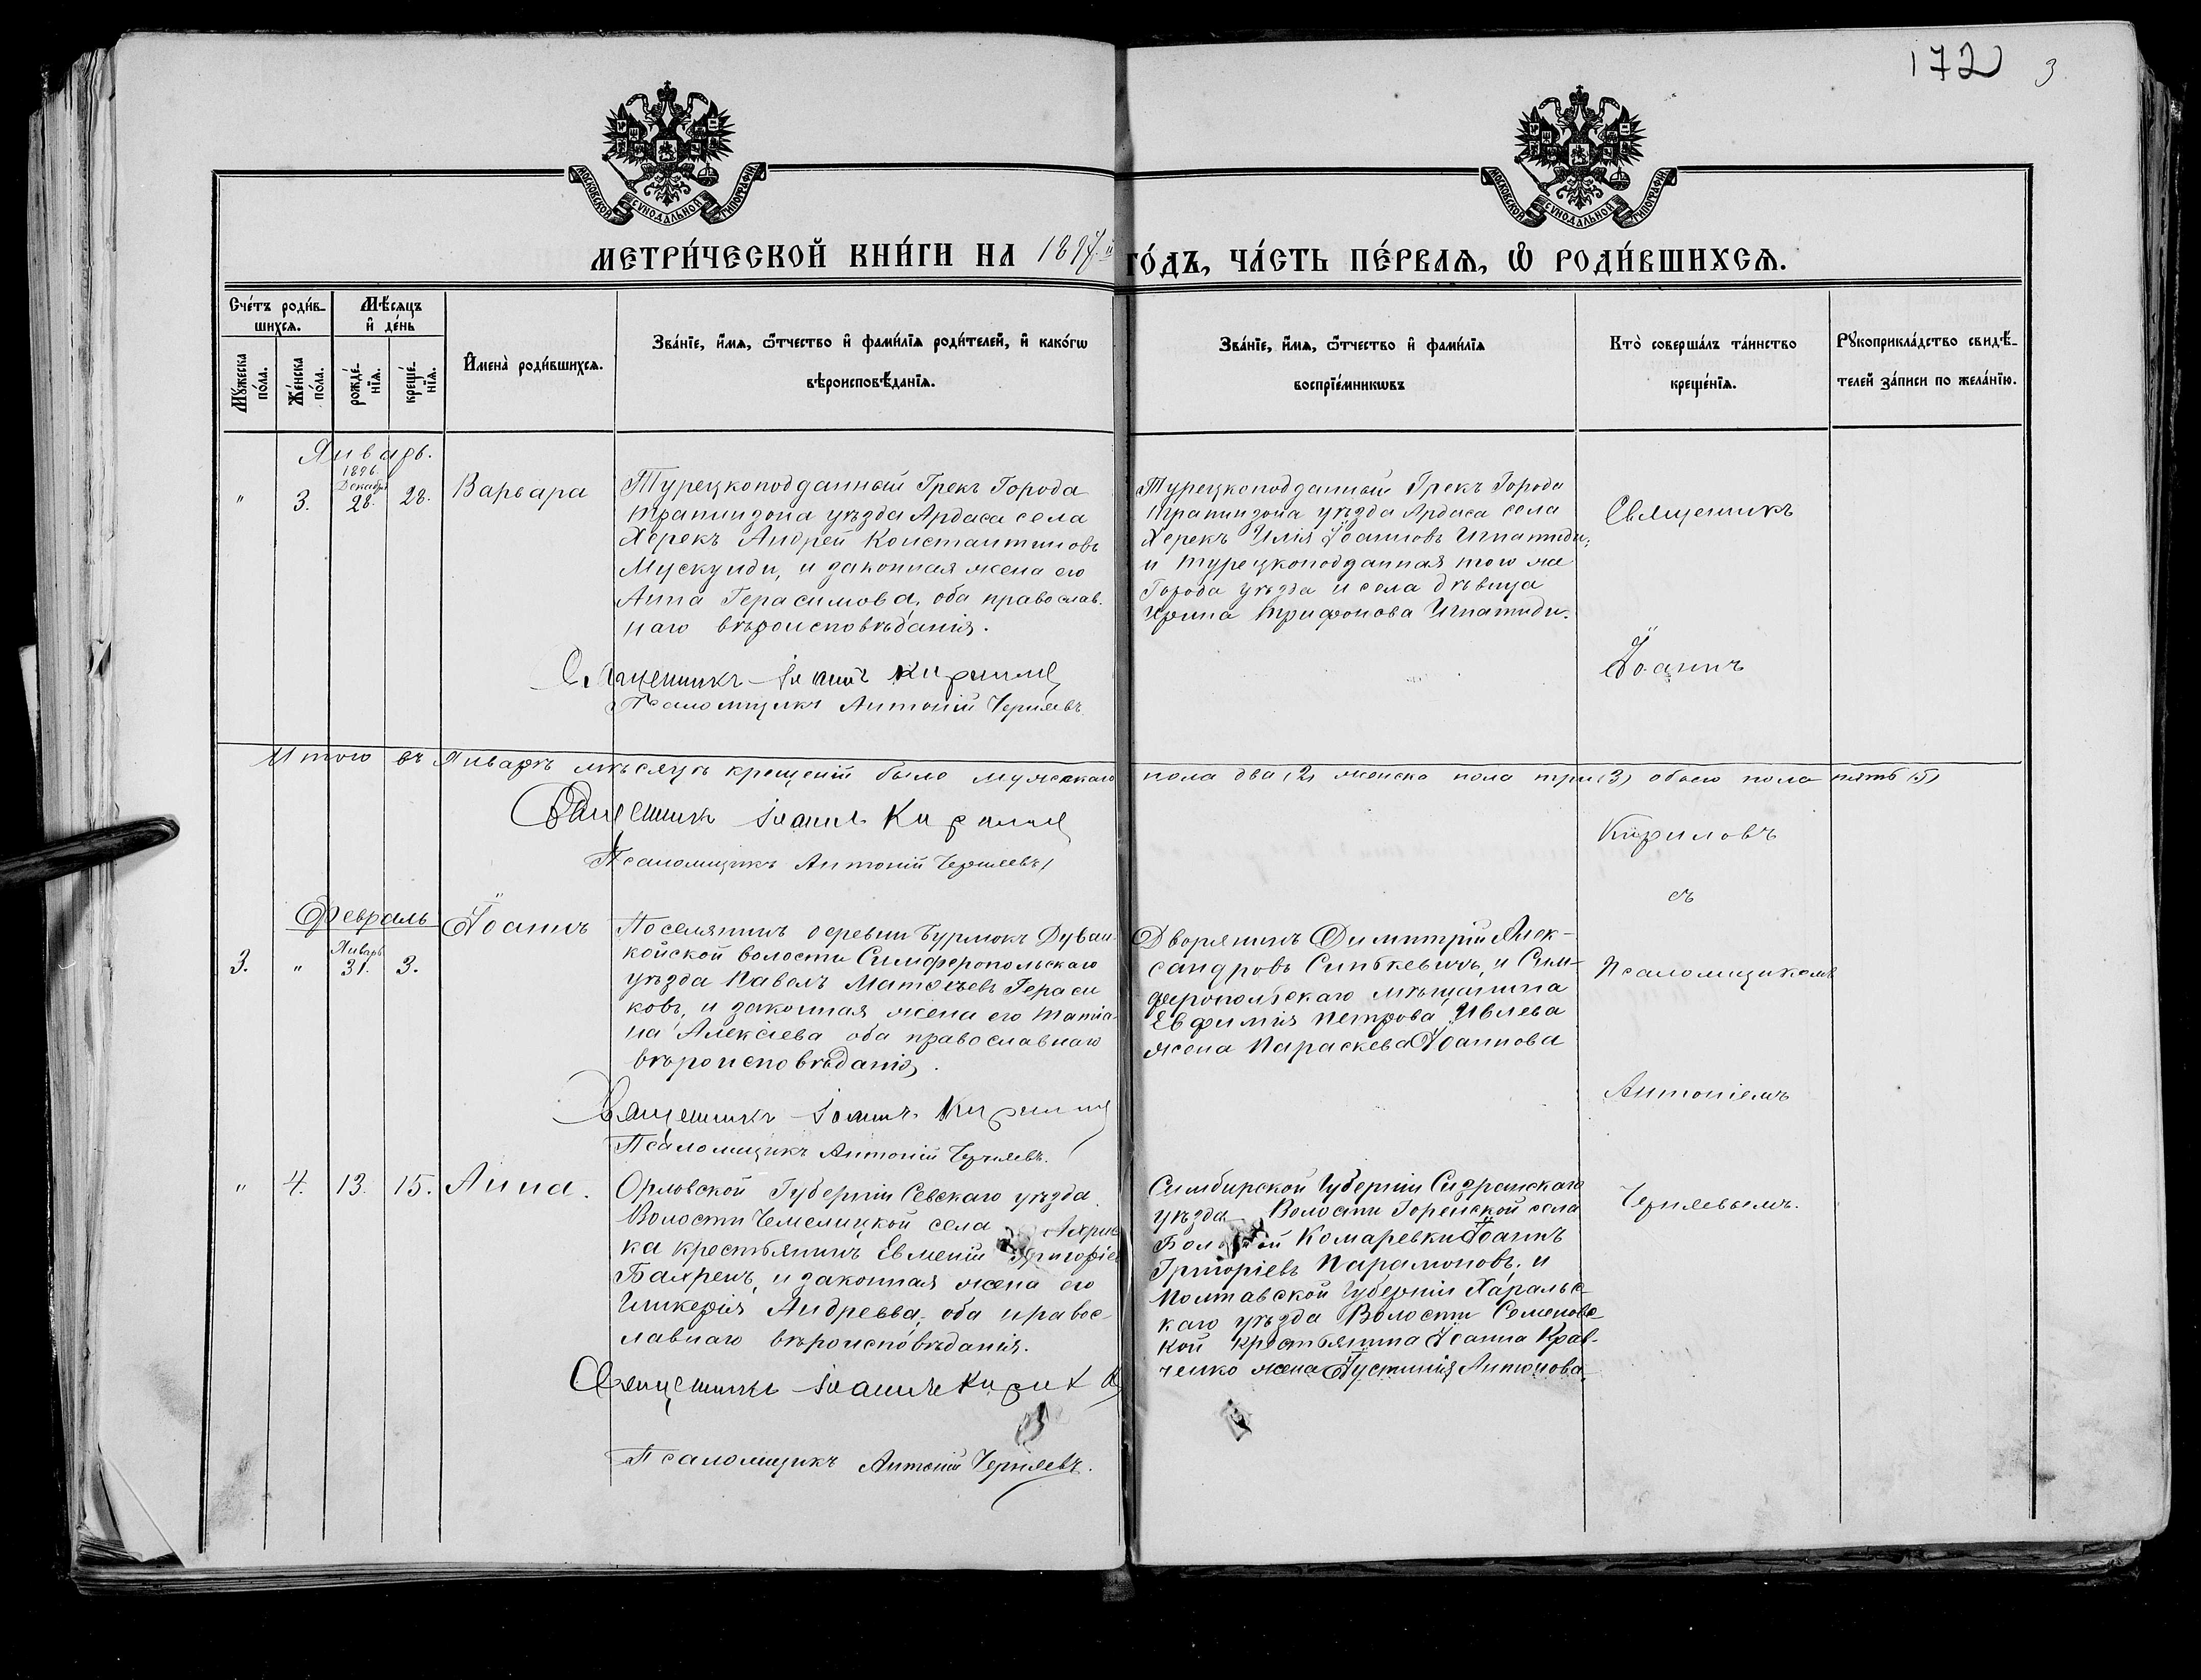 172 3
МОСКОВСКОЙ СѴНОДАЛЬНОЙ ТИПОГРАФІИ
МОСКОВСКОЙ СѴНОДАЛЬНОЙ ТИПОГРАФІИ
МЕТРИ́ЧЕСКОЙ КНИ́ГИ НА 1897й ГО́ДЪ, ЧА́СТЬ ПЕ́РВАѦ, Ѡ҆ РОДИ́ВШИХСѦ.
Сче́тъ роди́в-
шихсѧ.
Мꙋ́жеска
по́ла.
Же́нска
по́ла.
Мѣ́сяцъ
и҆ де́нь
рожде́-
нїѧ.
креще́-
нїѧ.
И҆мена̀ роди́вшихсѧ.
Зва́нїе, и҆́мѧ, ѻ҆́тчество и҆ фами́лїѧ роди́телей, и҆ како́гѡ
вѣроисповѣ́данїѧ.
Зва́нїе, и҆́мѧ, ѻ҆́тчество и҆ фами́лїѧ
воспрїе́мникѡвъ
Кто̀ соверша́лъ та́инство
креще́нїѧ.
Рꙋкоприкла́дство свидѣ́-
телей за́писи по жела́нїю.
Январь.
1896.
Декабря
" 3. 28. 28. Варвара
Турецкоподданный Грекъ Города
Трапизона уѣзда Ардаса села
Херекъ Андрей Константиновъ
Мускуиди, и законная жена его
Анна Герасимова, оба православ.
наго вѣроисповѣданія.
Священникъ Іоаннъ Кирилов
Псаломщикъ Антоній Черняевъ
Турецкоподданный Грекъ Города
Трапизона уѣзда Ардаса села
Херекъ Илія Іоанновъ Игнатиди,
и турецкоподданная того же
Города уѣзда и села дѣвица
Ирина Трифонова Игнатиди.
Священникъ
Іоаннъ
Итого въ Январѣ мѣсяцѣ крещеній было мужскаго пола два (2) женска пола три (3) обоего пола пять (5)
Священникъ Іоаннъ Кирилов
Псаломщикъ Антоній Черняевъ
Кириловъ
съ
Февраль
Январь
3. " 31. 3. Іоаннъ
Поселянинъ деревни Бурлюкъ Дуван-
койской волости Симферопольскаго
уѣзда Павелъ Матѳеевъ Гераси
ковъ, и законная жена его Татіа-
на Алексіева оба православнаго
вѣроисповѣданія.
Священникъ Іоаннъ Кирилов
Псаломщикъ Антоній Черняевъ.
Дворянинъ Димитрій Алек-
сандровъ Синькевичъ, и Сим-
феропольскаго мѣщанина
Евфимія Петрова Ивлева
жена Параскева Іоаннова
Псаломщикомъ
Антоніемъ
" 4. 13. 15. Анна.
Орловской Губерніи Севскаго уѣзда
Волости Чемлицкой села
ка крестьянинъ Евменій Григоріев
Бахревъ, и законная жена его
Гликерія Андреева, оба правос-
лавнаго вѣроисповѣданія.
Священникъ Іоаннъ Кирилов
Псаломщикъ Антоній Черняевъ.
Симбирской Губерніи Сизранскаго
уѣзда Волости села
Комаревки Іоаннъ
Григоріевъ Парамоновъ, и
Полтавской Губерніи Харальс-
каго уѣзда Волости Семеновс
кой крестьянина Іоанна Крав-
ченко жена Іустинія Антонова.
Черняевымъ.